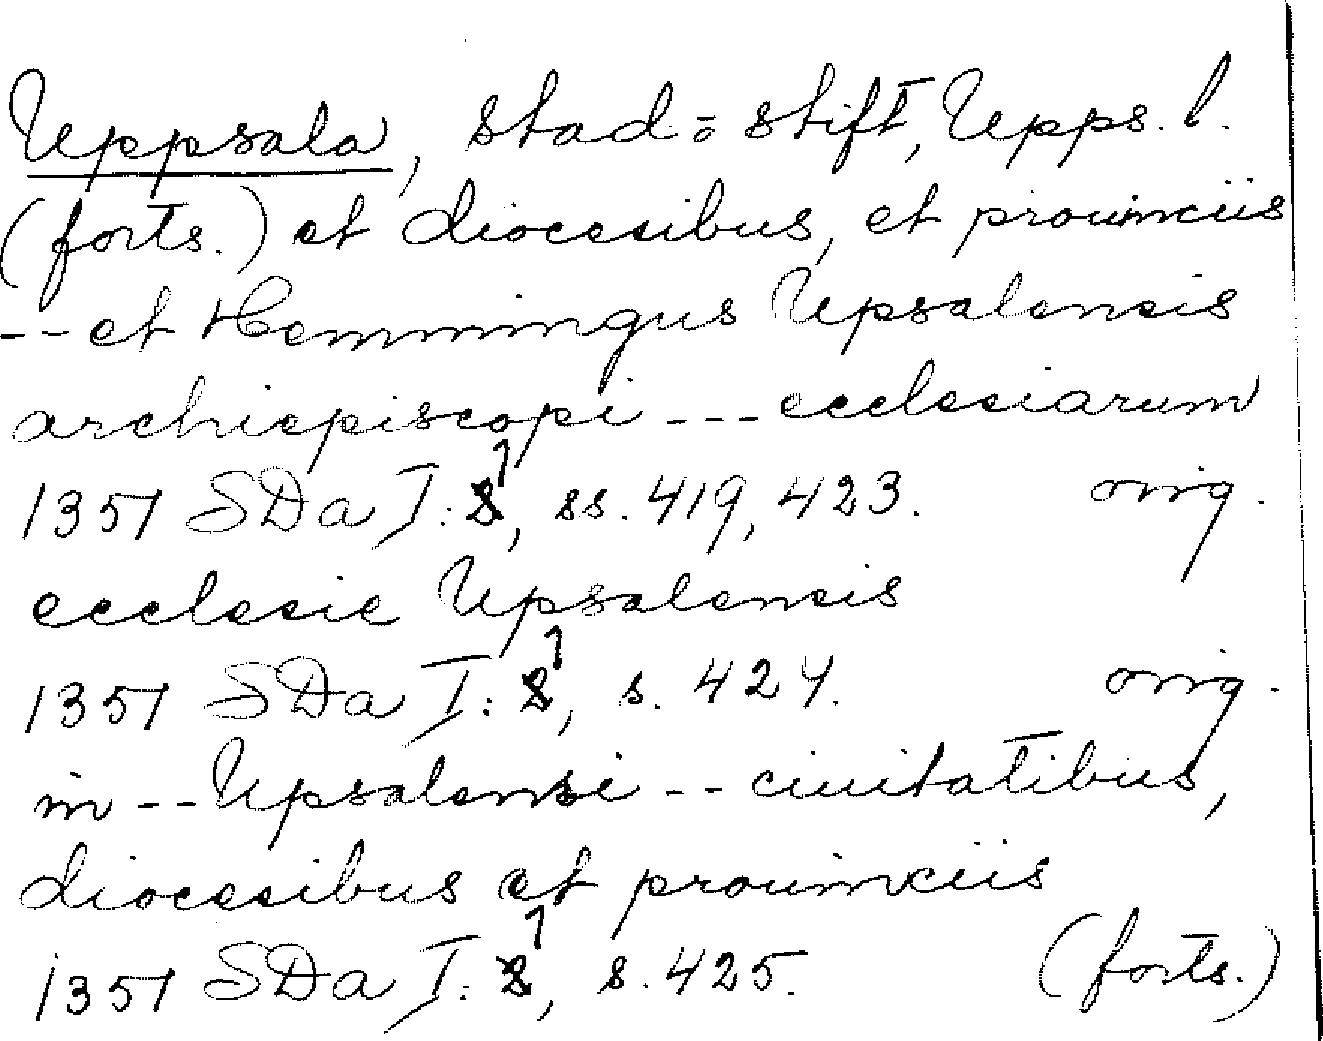 Uppsala, stad o stift, Upps. l.
(forts.) et diocesibus, et prouinciis
-- et Hemmingus Upsalensis
archiepiscopi --- ecclesiarum
1351 SDa I: 1, ss. 419, 423. orig.
ecclesie Upsalensis
1351 SDa I: 1, s. 424. orig.
in -- Upsalensi -- ciuitatibus,
diocesibus et prouinciis
1351 SDa I: 1, s. 425. (forts.)